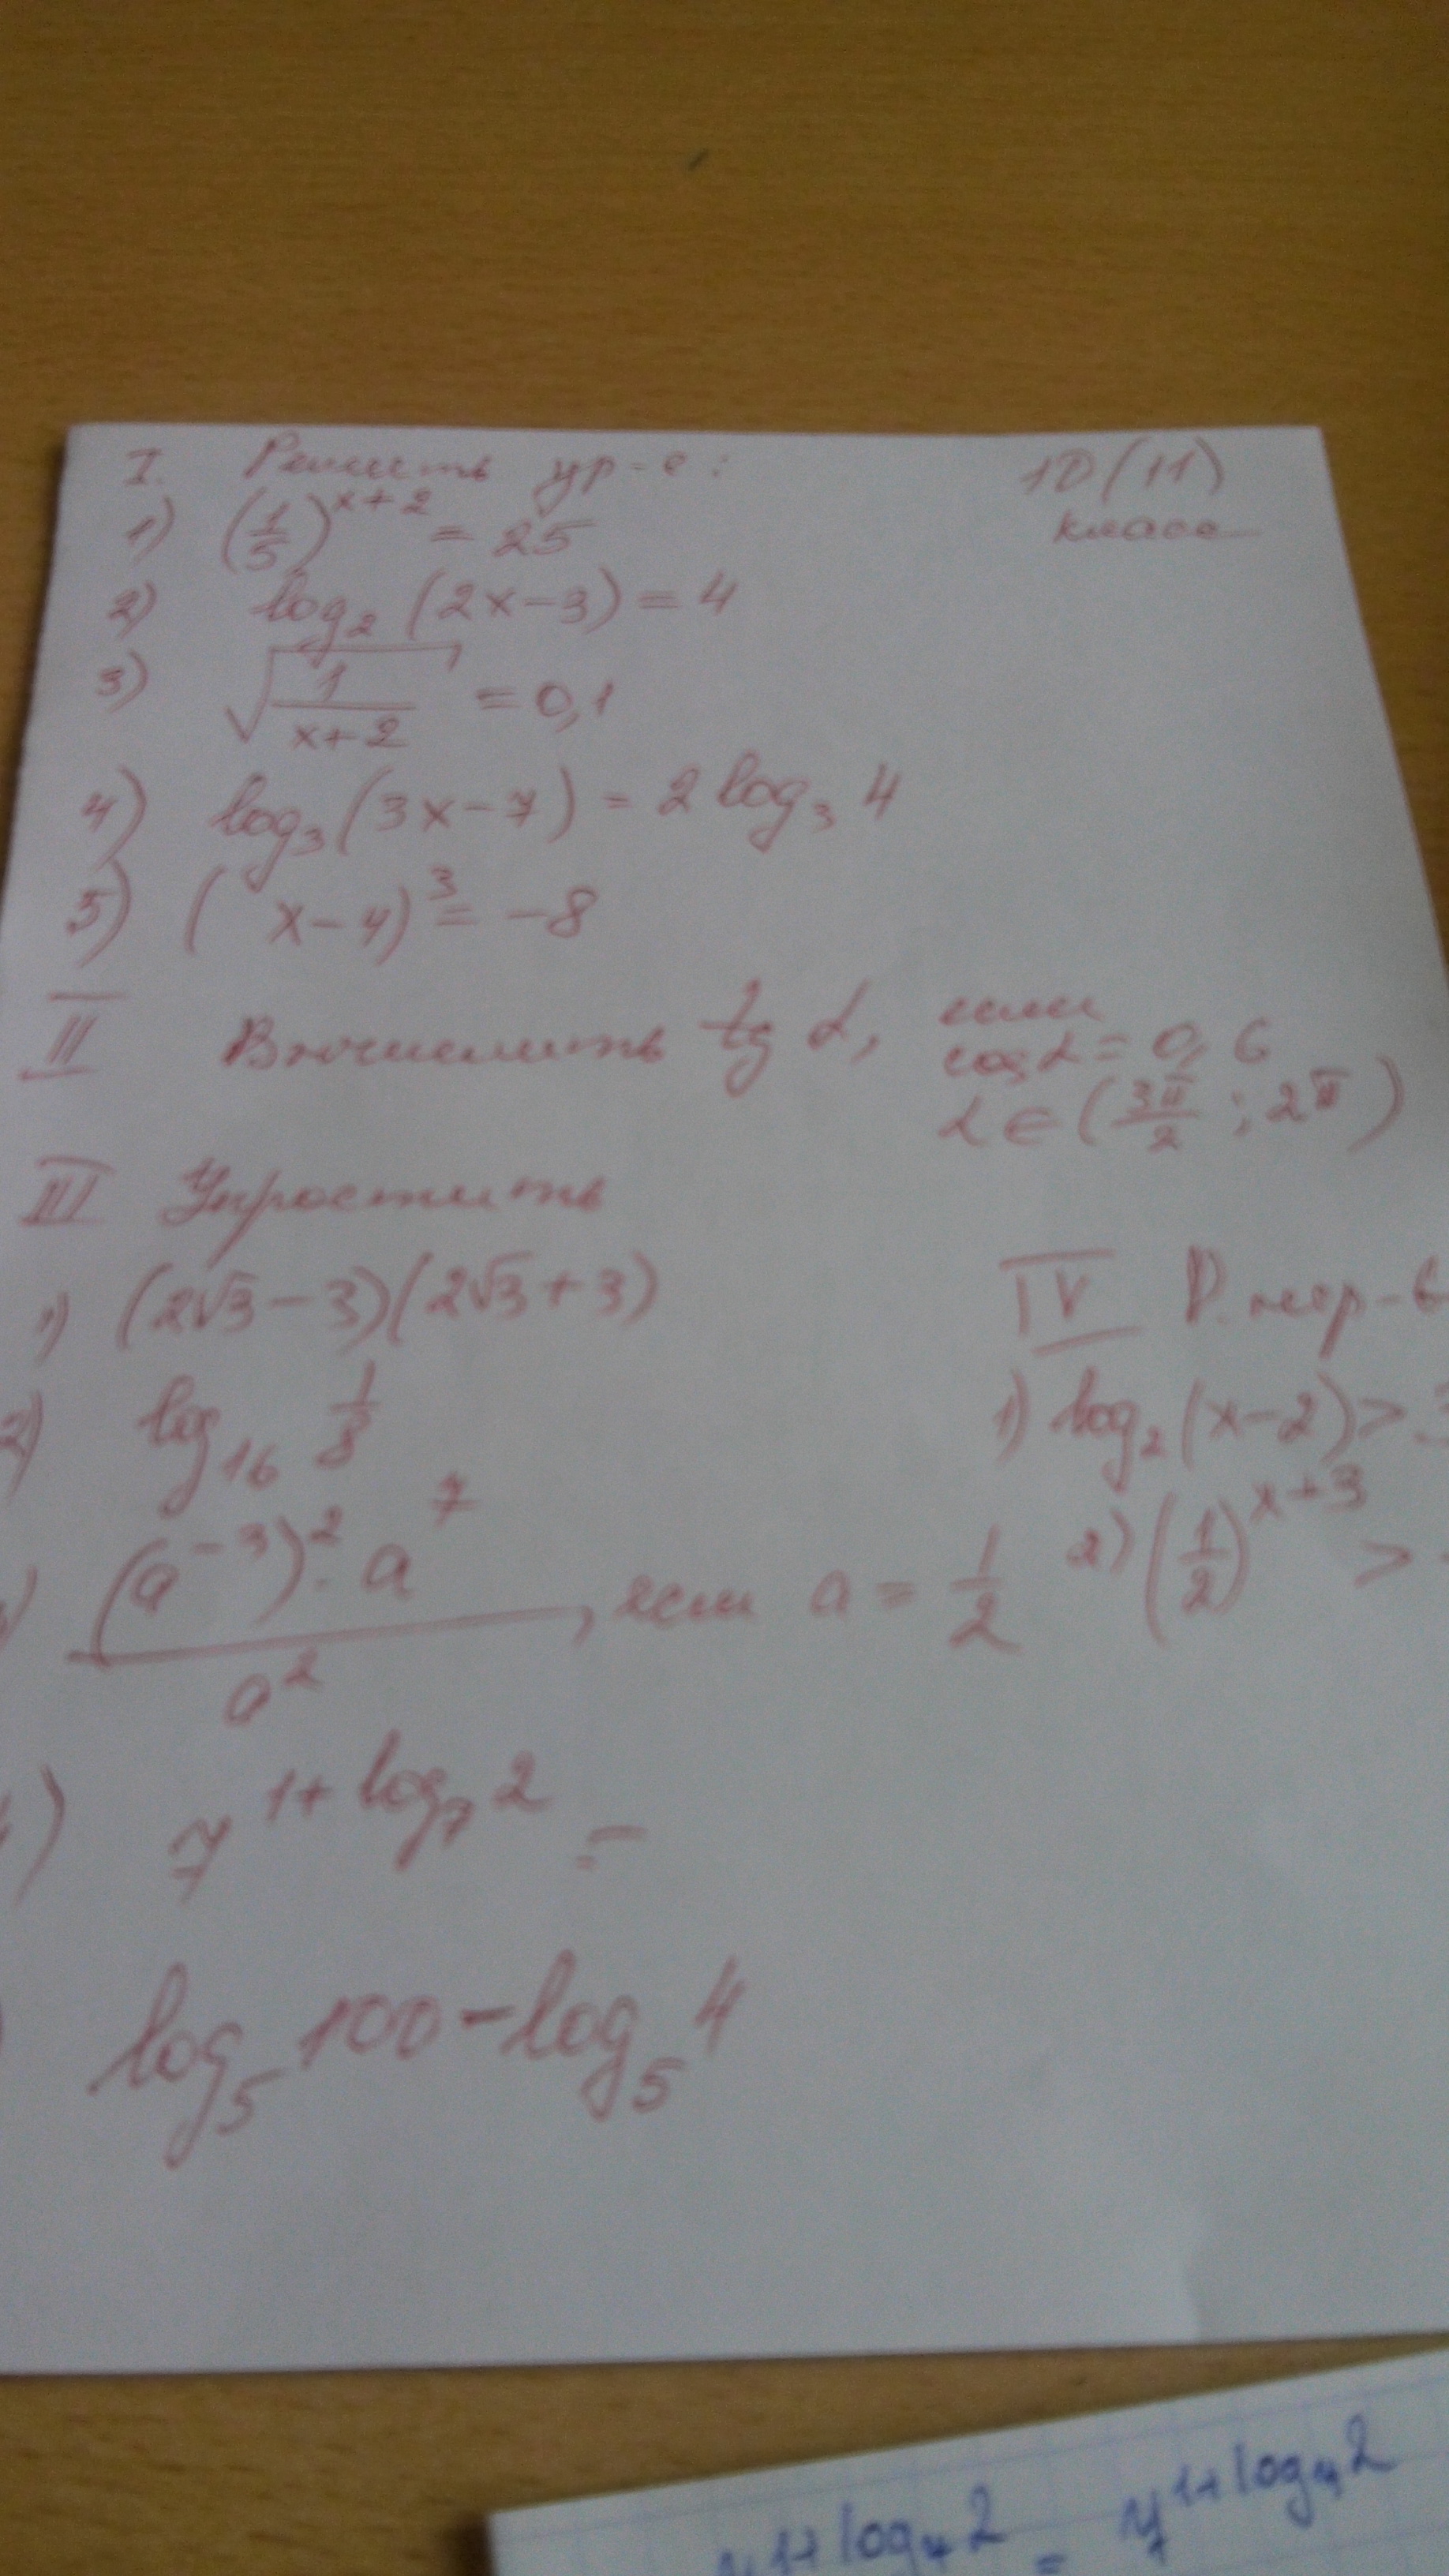 I. Решить ур-е:
10(11)
класс
1) (1/5)^(x+2) = 25
2) log₂(2x-3) = 4
3) √(1/(x+2)) = 0,1
4) log₃(3x-7) = 2log₃4
5) (x-4)³ = -8
II Вычислить tg α, если
cos α = 0,6
α ∈ (3π/2; 2π)
III Упростить
1) (2√3-3)(2√3+3)
2) log₁₆ 1/8
((a⁻³)² · a⁷)/a², если a = 1/2
) 7^(1+log₇2) =
log₅100-log₅4
IV Р. нер-в
1) log₂(x-2) > 3
2) (1/2)^(x+3) >
1+log₇2 = 7^(1+log₇2)